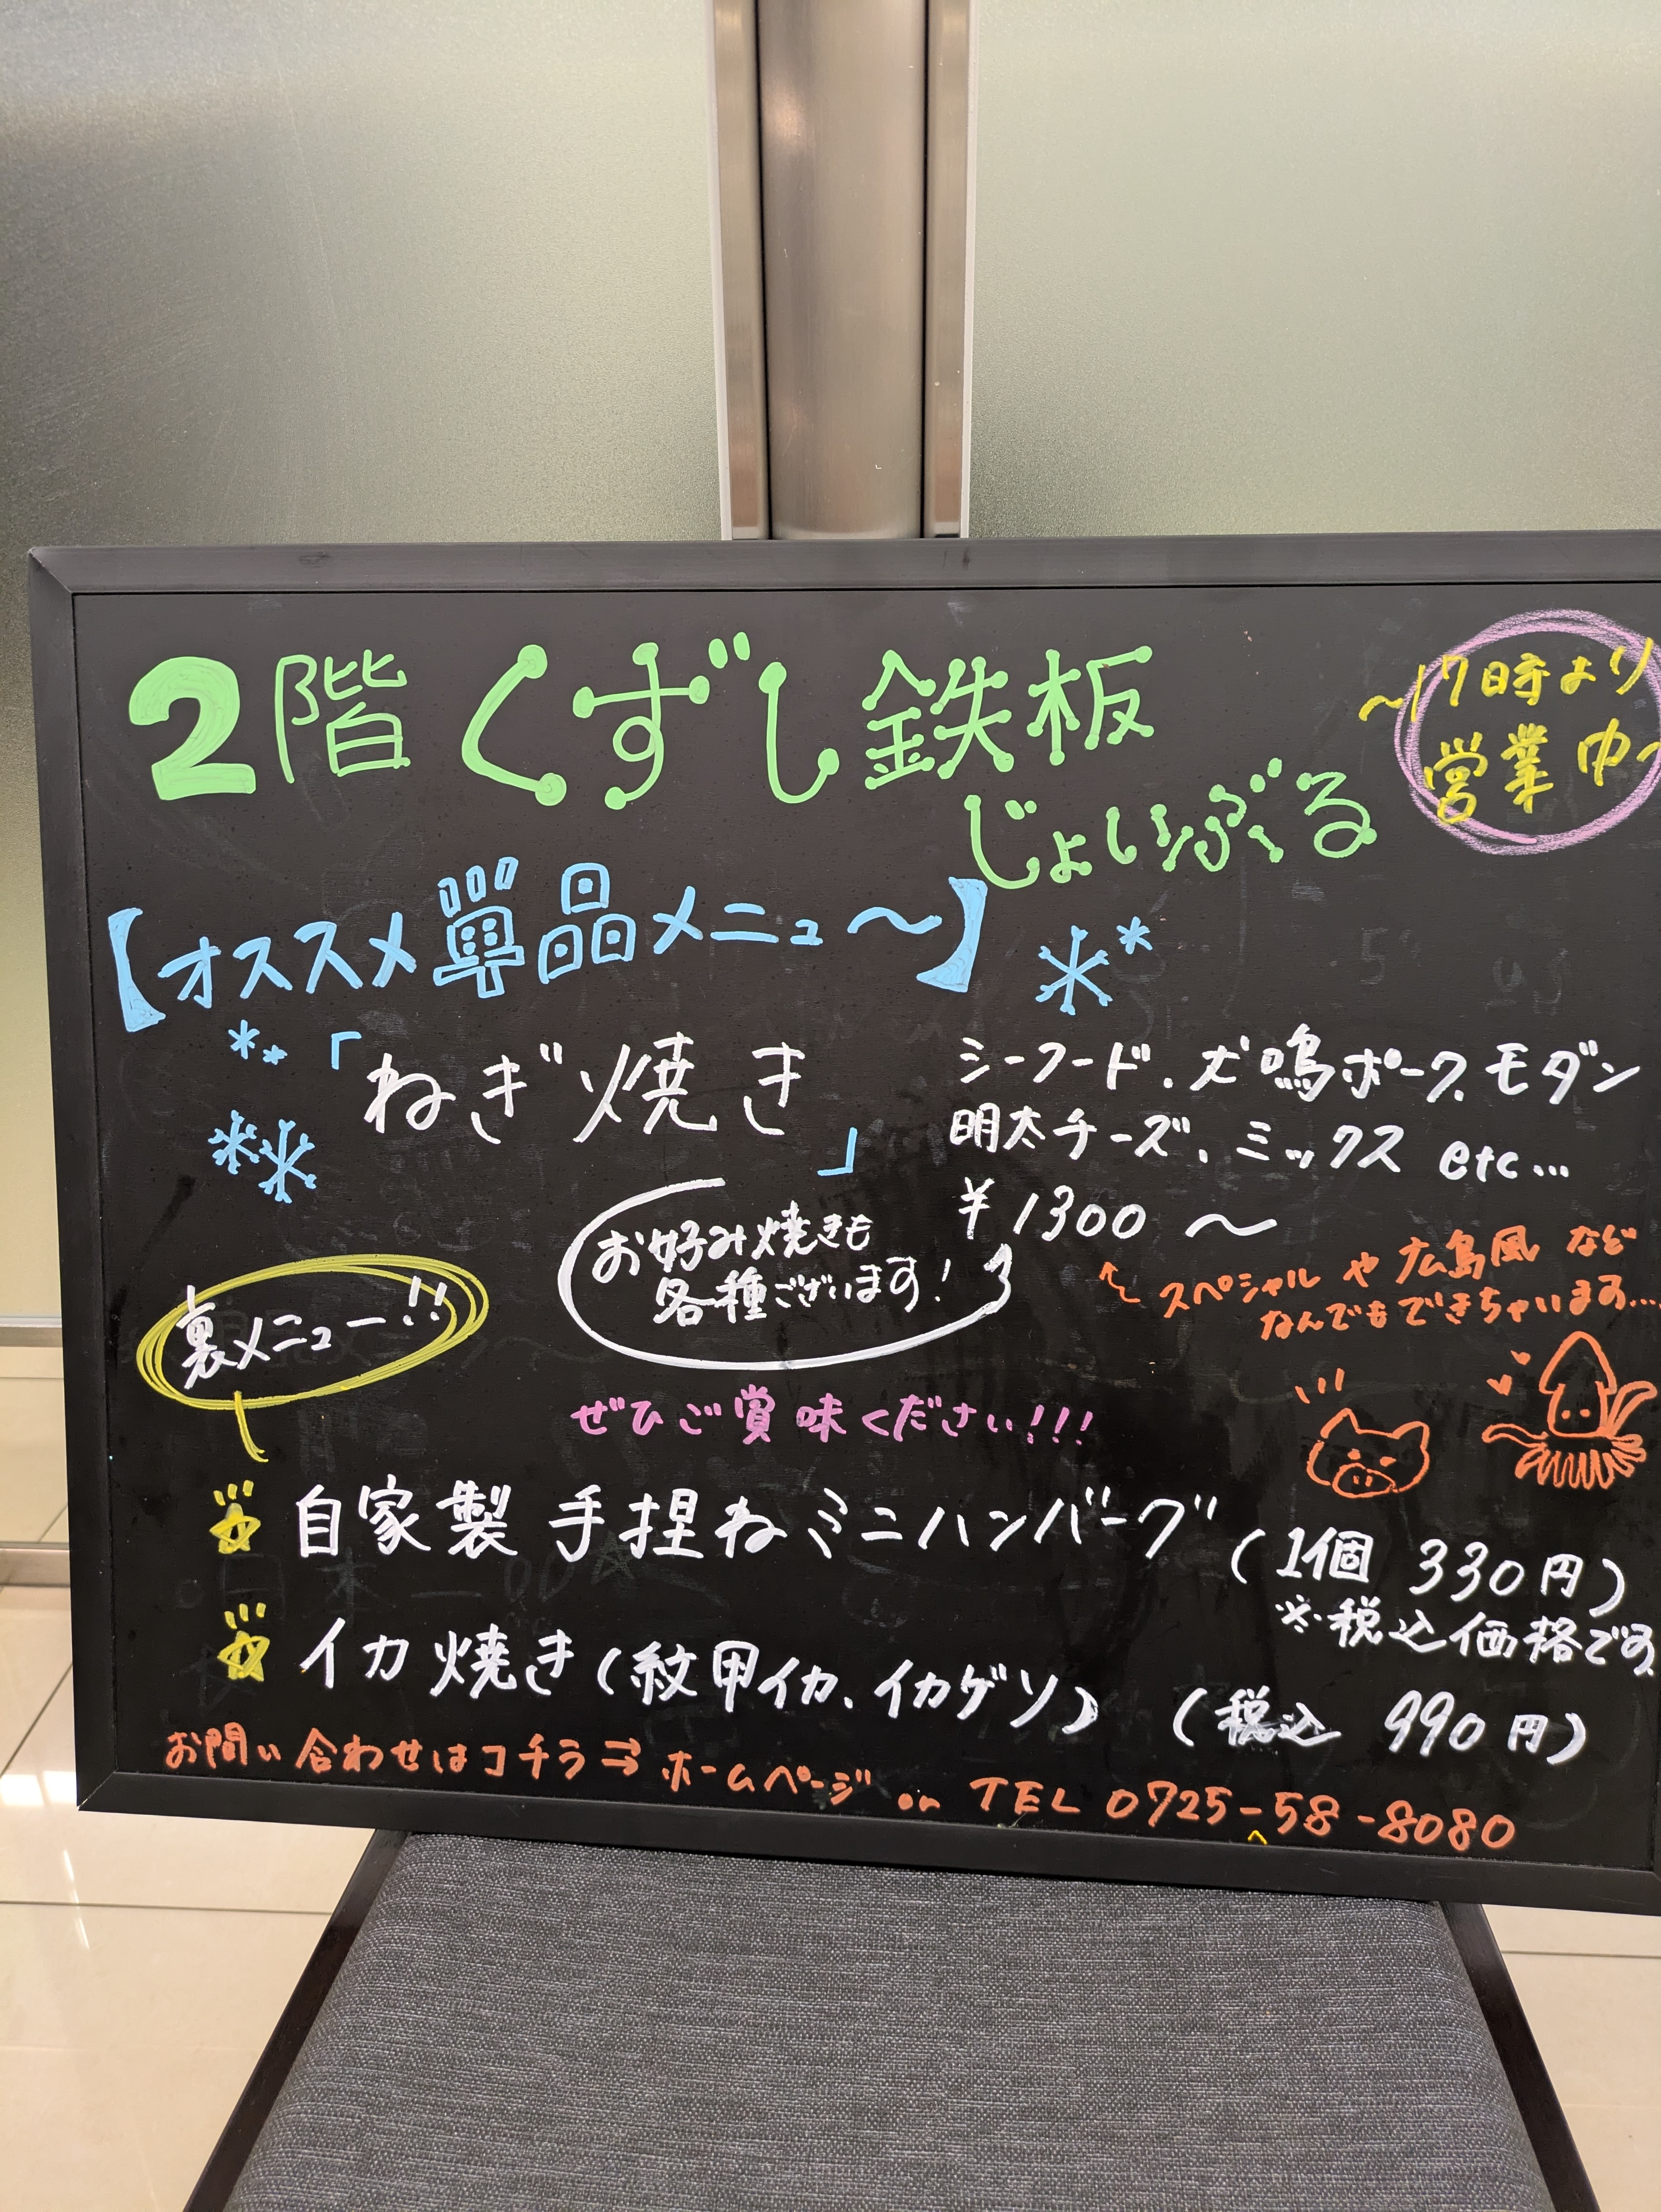 2階 くずし鉄板
じょいふる
~17時より
営業中~
【オススメ単品メニュ~】
「ねぎ焼き」
シーフード、犬鳴ポーク、モダン
明太チーズ、ミックス etc...
¥1300 ~
お好み焼きも
各種ございます!
スペシャル や 広島風 など
なんでもできちゃいます....
裏メニュー!!
ぜひご賞味ください!!!
自家製 手捏ねミニハンバーグ (1個 330円)
※税込価格です
イカ焼き(紋甲イカ、イカゲソ) (税込 990円)
お問い合わせはコチラ⇒ホームページ or TEL 0725-58-8080